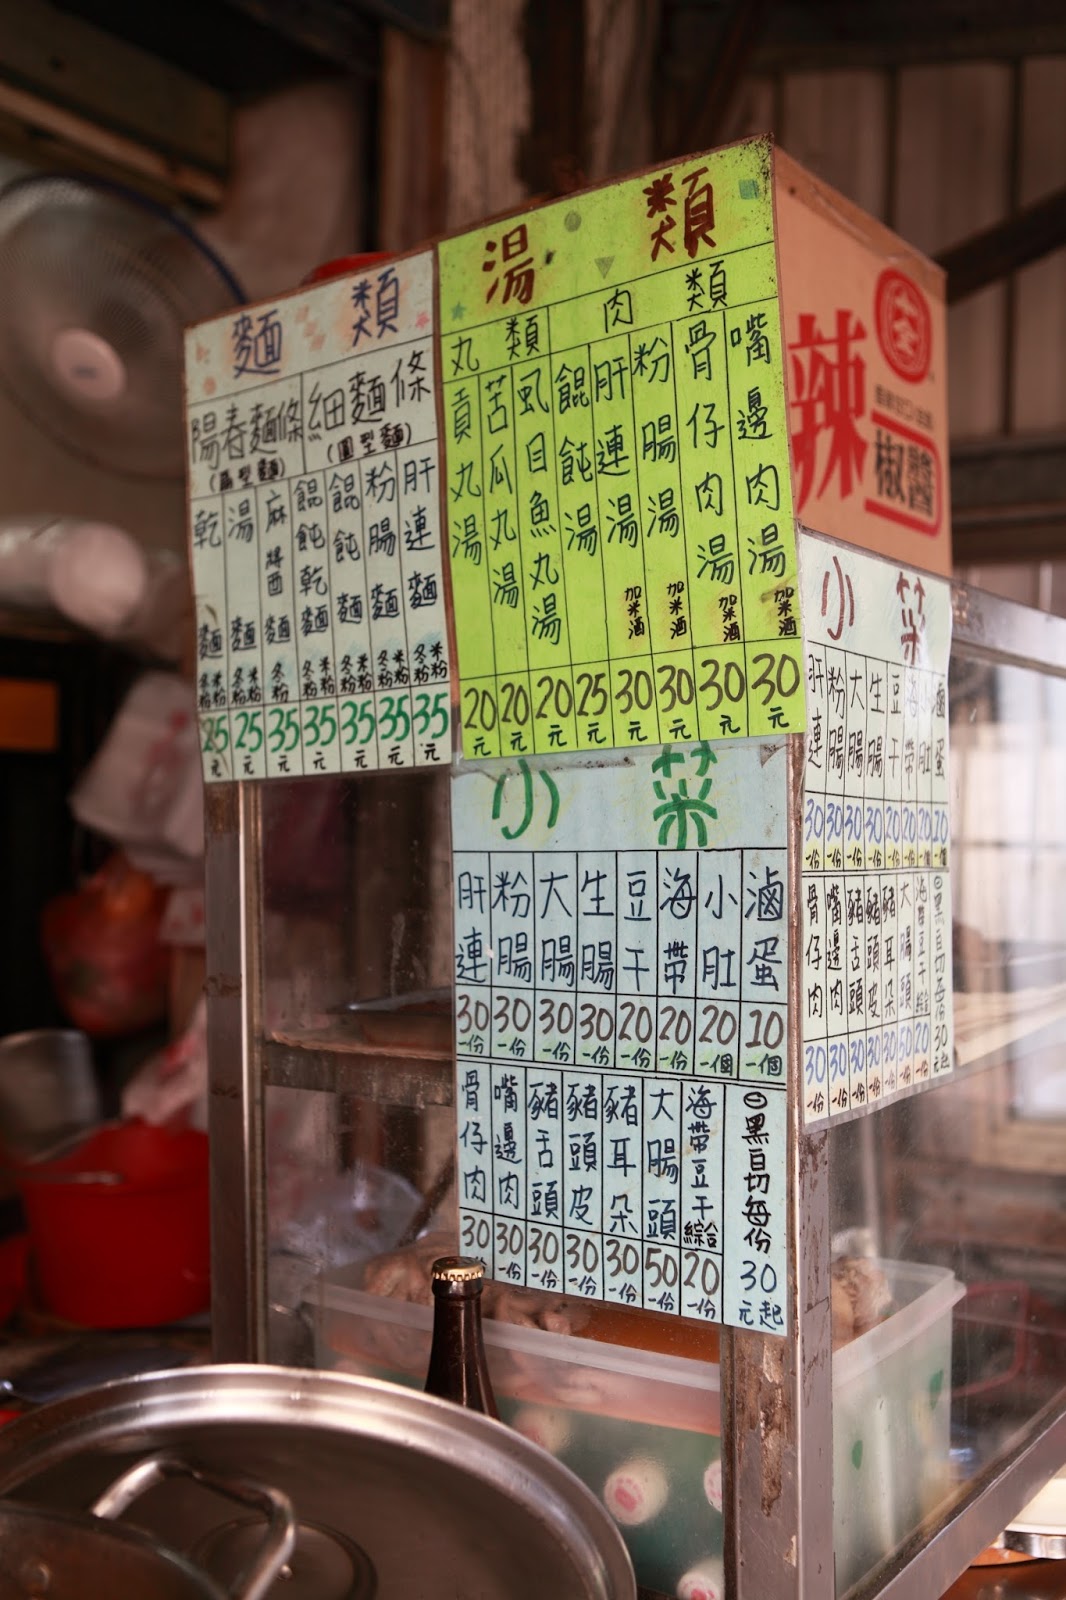 麵類
陽春麵條
(扁型麵)
細麵條
(圓型麵)
乾麵 冬粉 米粉 25元
湯麵 冬粉 米粉 25元
麻醬麵 冬粉 35元
餛飩乾麵 冬粉 米粉 35元
餛飩麵 冬粉 米粉 35元
粉腸麵 冬粉 米粉 35元
肝連麵 冬粉 米粉 35元
湯類
丸類
肉類
貢丸湯 20元
苦瓜丸湯 20元
虱目魚丸湯 20元
餛飩湯 25元
肝連湯 加米酒 30元
粉腸湯 加米酒 30元
骨仔肉湯 加米酒 30元
嘴邊肉湯 加米酒 30元
辣椒醬
小菜
肝連 30一份
粉腸 30一份
大腸 30一份
生腸 30一份
豆干 20一份
海帶 20一份
小肚 20一個
滷蛋 10一個
骨仔肉 30
嘴邊肉 30一份
豬舌頭 30一份
豬頭皮 30一份
豬耳朵 30一份
大腸頭 50一份
海帶豆干綜合 20一份
㊀黑白切每份30元起
小菜
肝連 30一份
粉腸 30一份
大腸 30一份
生腸 30一份
豆干 20一份
海帶 20一份
小肚 20一個
滷蛋 10一個
骨仔肉 30一份
嘴邊肉 30一份
豬舌頭 30一份
豬頭皮 30一份
豬耳朵 30一份
大腸頭 50一份
海帶豆干綜合 20一份
㊀黑白切每份30元起